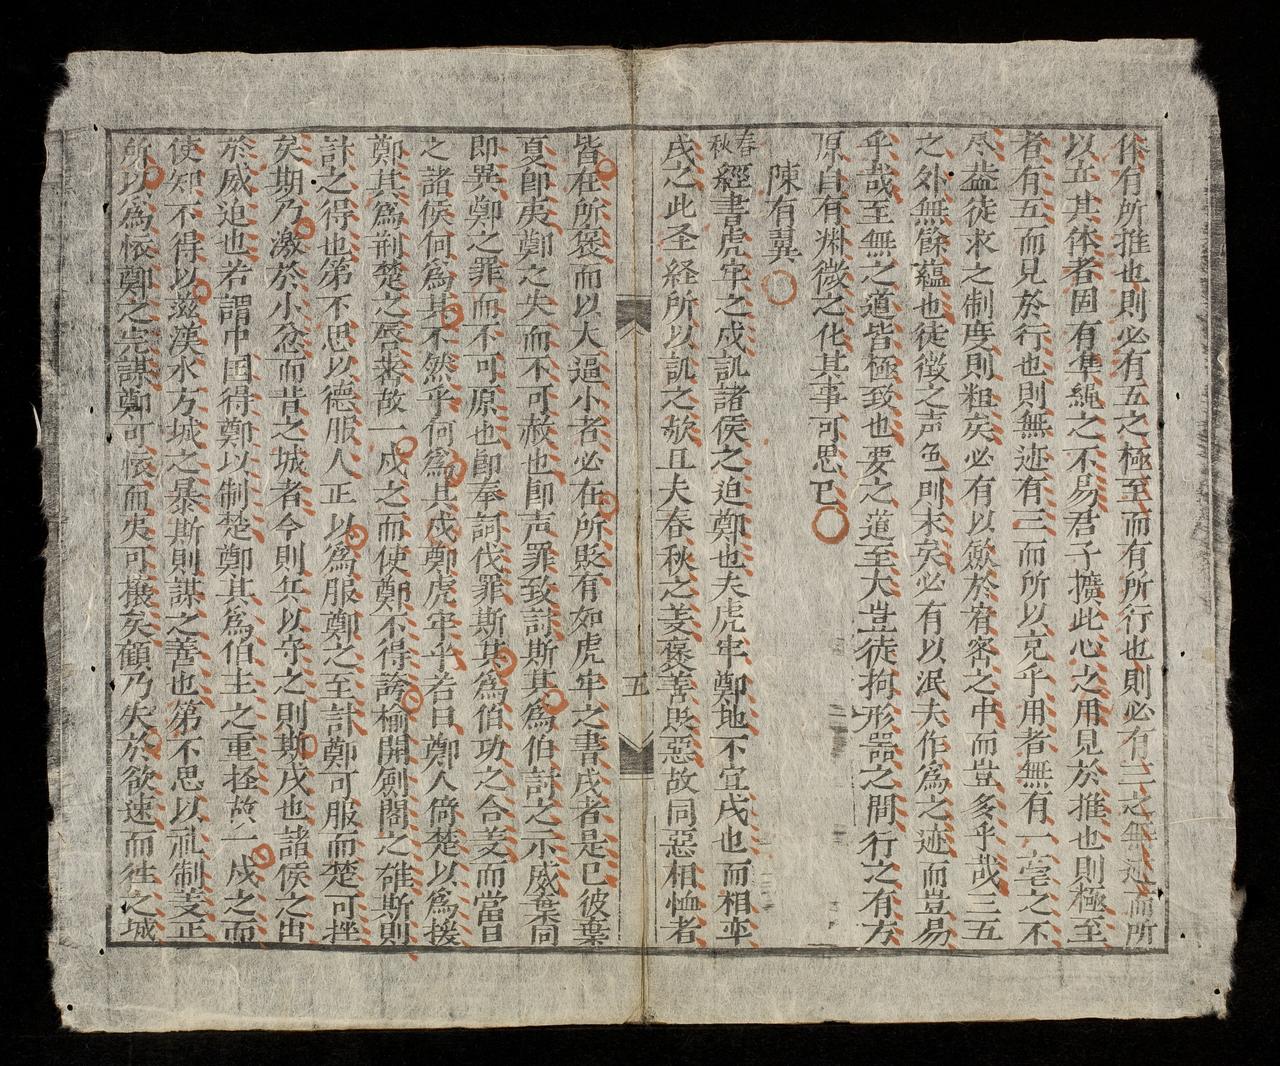 体有所推也則必有五之極至而有所行也則必有三之無迹而所
以立其体者固有準繩之不易君子擴此心之用見於推也則極至
者有五而見於行也則無迹有三而所以克乎用者無有一毫之不
尽益徒求之制度則粗矣必有以歛於宥密之中而豈多乎哉三五
之外無餘蘊也徒徵之声色則末矣必有以泯夫作為之迹而豈易
乎哉至無之道皆極致也要之道至大豈徒拘形器之間行之有方
原自有渊微之化其事可思已
陳有翼
春秋經書虎牢之戍訊諸侯之迫鄭也夫虎牢鄭地不宜戍也而相率
戍之此圣経所以訊之欤且夫春秋之義褒善貶惡故同惡相恤者
五
皆在所褒而以大逼小者必在所貶有如虎牢之書戍者是已彼棄
夏卽夷鄭之失而不可赦也卽声罪致討斯其為伯討之示威葉同
即異鄭之罪而不可原也卽奉詞伐罪斯其為伯功之合義而當日
之諸侯何為其不然乎何為其戍鄭虎牢乎若曰鄭人倚楚以為援
鄭其為荆楚之唇來故一戍之而使鄭不得誇榆開劍閣之雄斯則
計之得也第不思以德服人正以為服鄭之至計鄭可服而楚可挫
矣期乃激於小忿而昔之城者今則兵以守之則斯戍也諸侯之出
於威迫也若謂中国得鄭以制楚鄭其為伯主之重拯故一戍之而
使知不得以茲漢水方城之暴斯則謀之善也第不思以礼制支正
所以為懷鄭之完謀鄭可懷而夷可攘矣顧乃失於欲速而徃之城